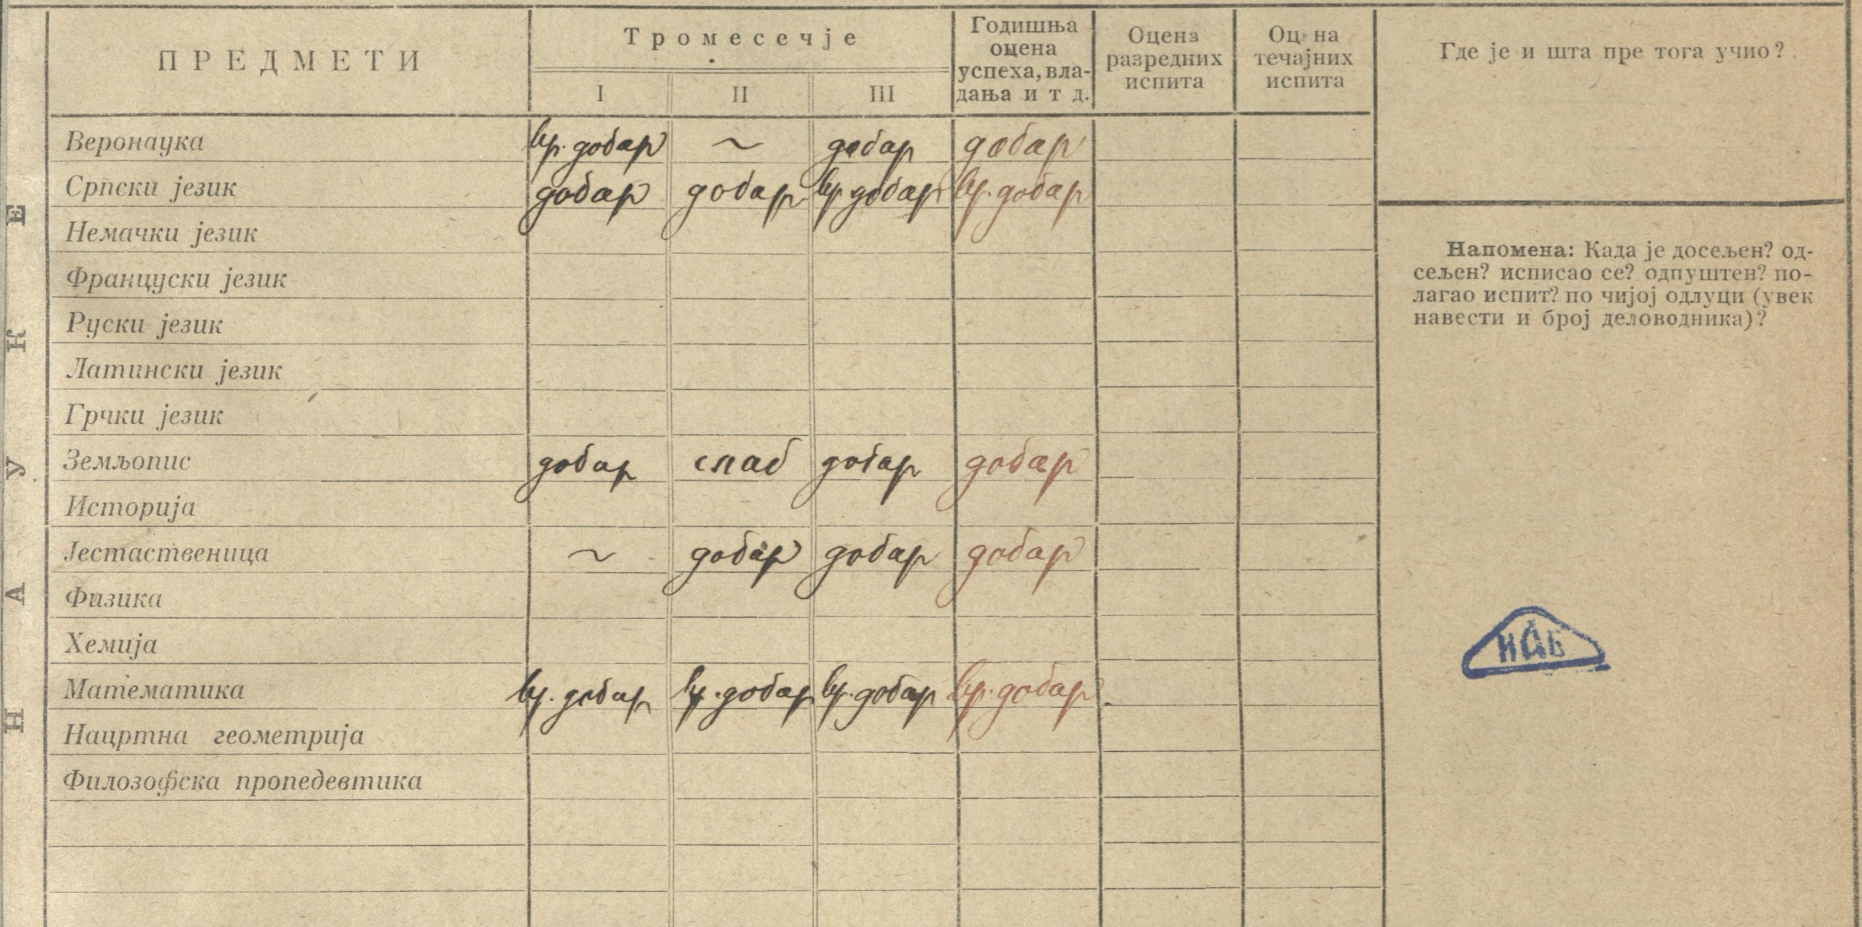 ПРЕДМЕТИ
Тромесечје
I II III
Годишња
оцена
успеха, вла-
дања и т д.
Оцена
разредних
испита
Оц. на
течајних
испита
Где је и шта пре тога учио?
НАУКЕ
Веронаука вр. добар ~ добар добар
Српски језик добар добар вр добар вр. добар
Немачки језик
Француски језик
Руски језик
Латински језик
Грчки језик
Земљопис добар слаб добар добар
Историја
Јестаственица ~ добар добар добар
Физика
Хемија
Математика вр. добар вр. добар вр. добар вр. добар
Нацртна геометрија
Филозофска пропедевтика
Напомена: Када је досељен? од-
сељен? исписао се? одпуштен? по-
лагао испит? по чијој одлуци (увек
навести и број деловодника)?
ИАБ